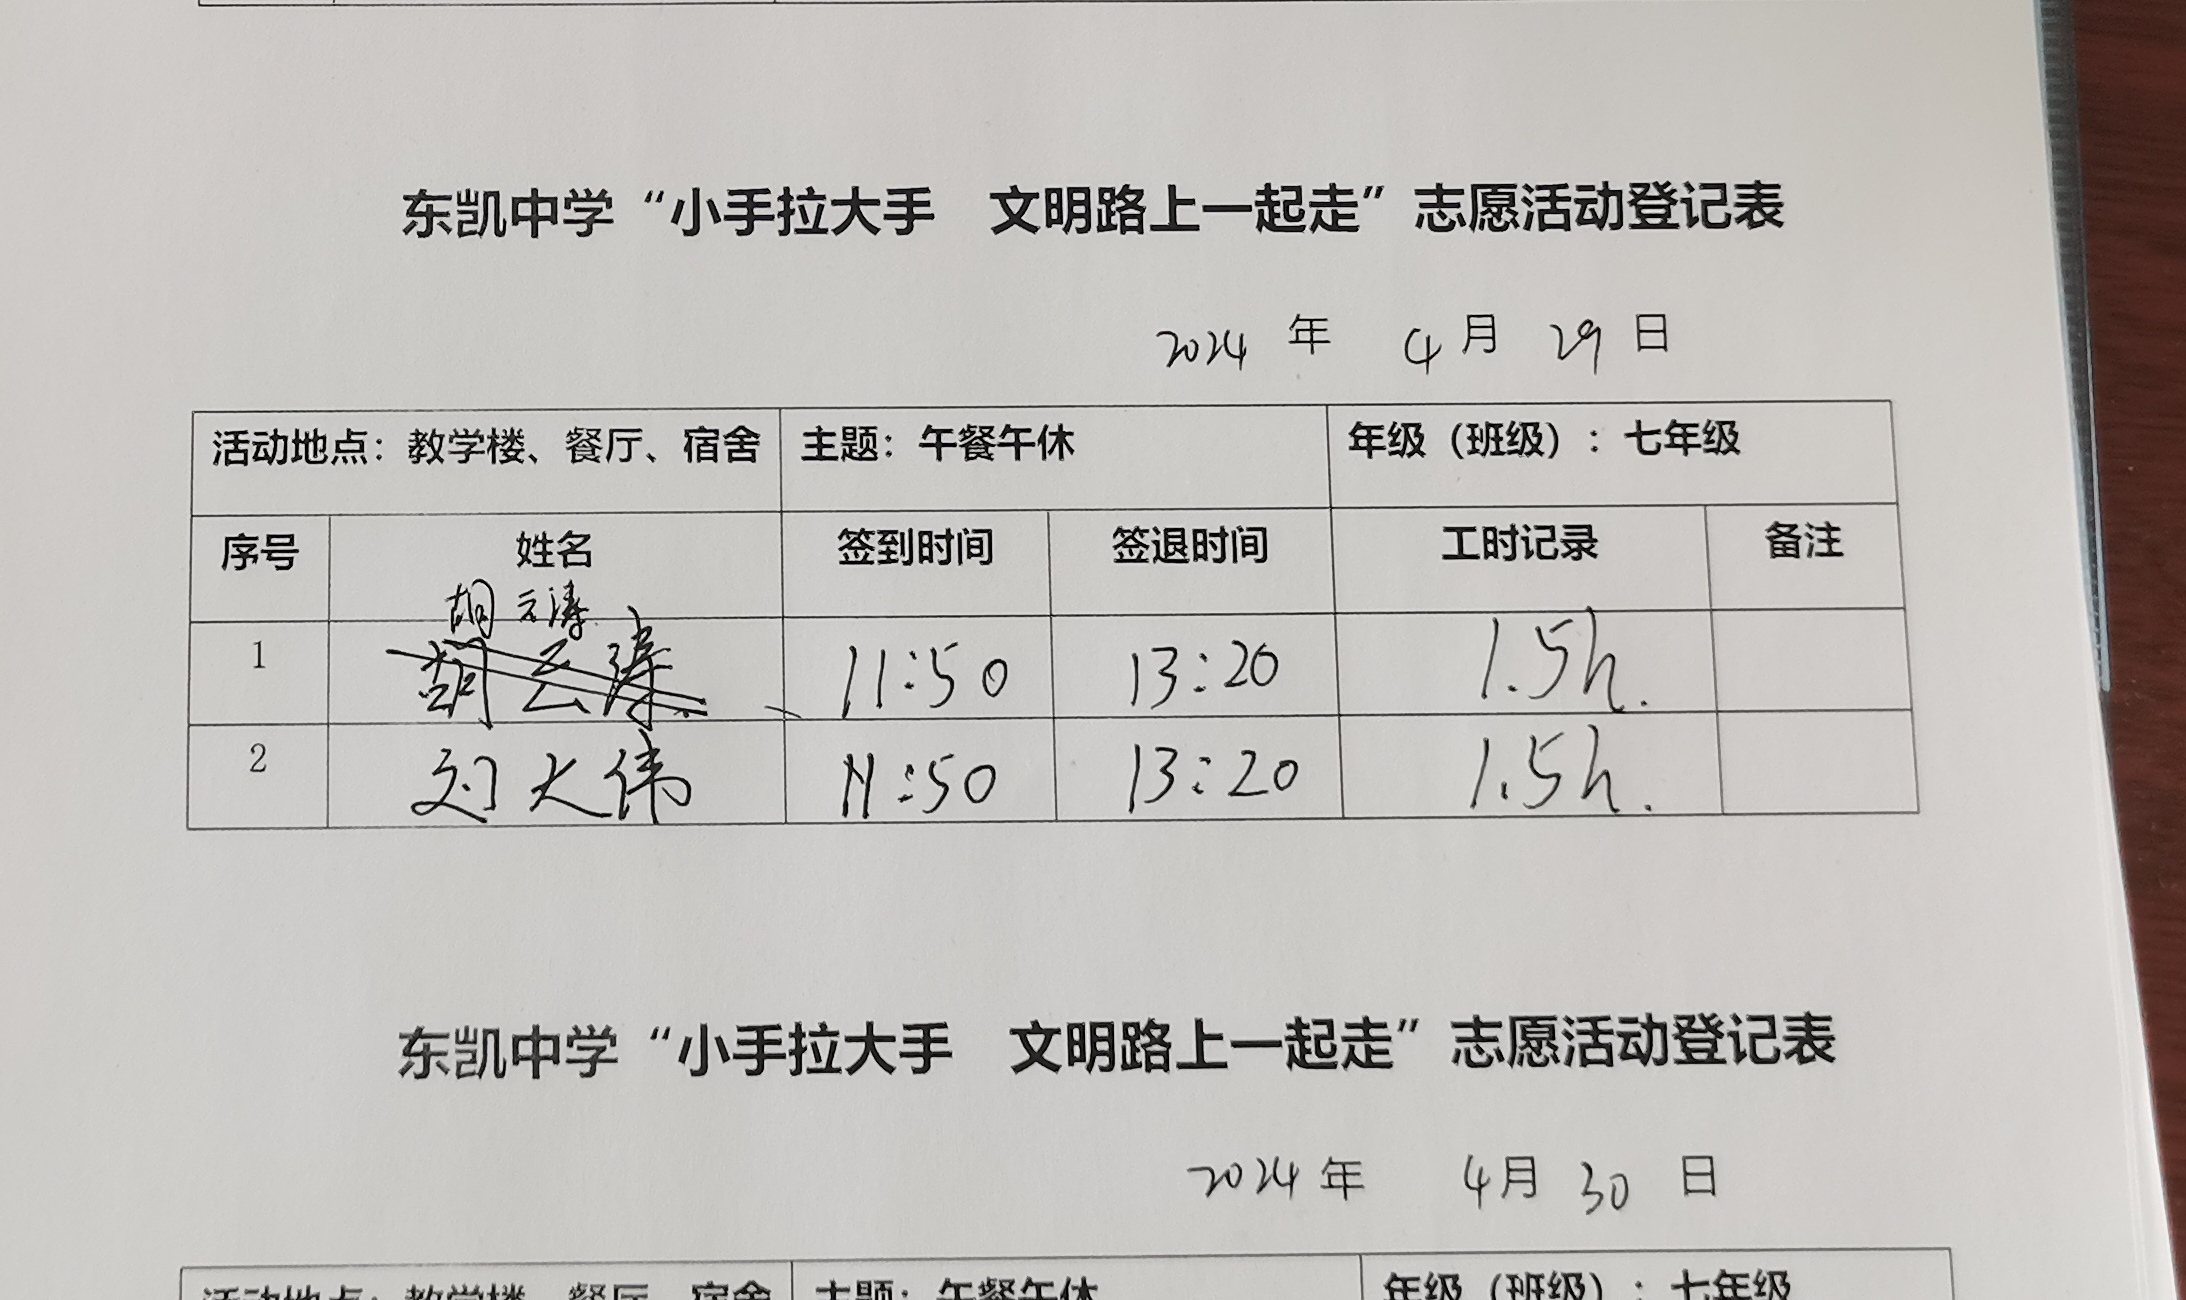 东凯中学“小手拉大手　文明路上一起走”志愿活动登记表
2024 年 4 月 29 日
活动地点：教学楼、餐厅、宿舍 主题：午餐午休 年级（班级）：七年级
序号 姓名 签到时间 签退时间 工时记录 备注
胡云涛
1 胡云涛 11:50 13:20 1.5h.
2 刘大伟 11:50 13:20 1.5h.
东凯中学“小手拉大手　文明路上一起走”志愿活动登记表
2024 年 4 月 30 日
活动地点：教学楼、餐厅、宿舍 主题：午餐午休 年级（班级）：七年级